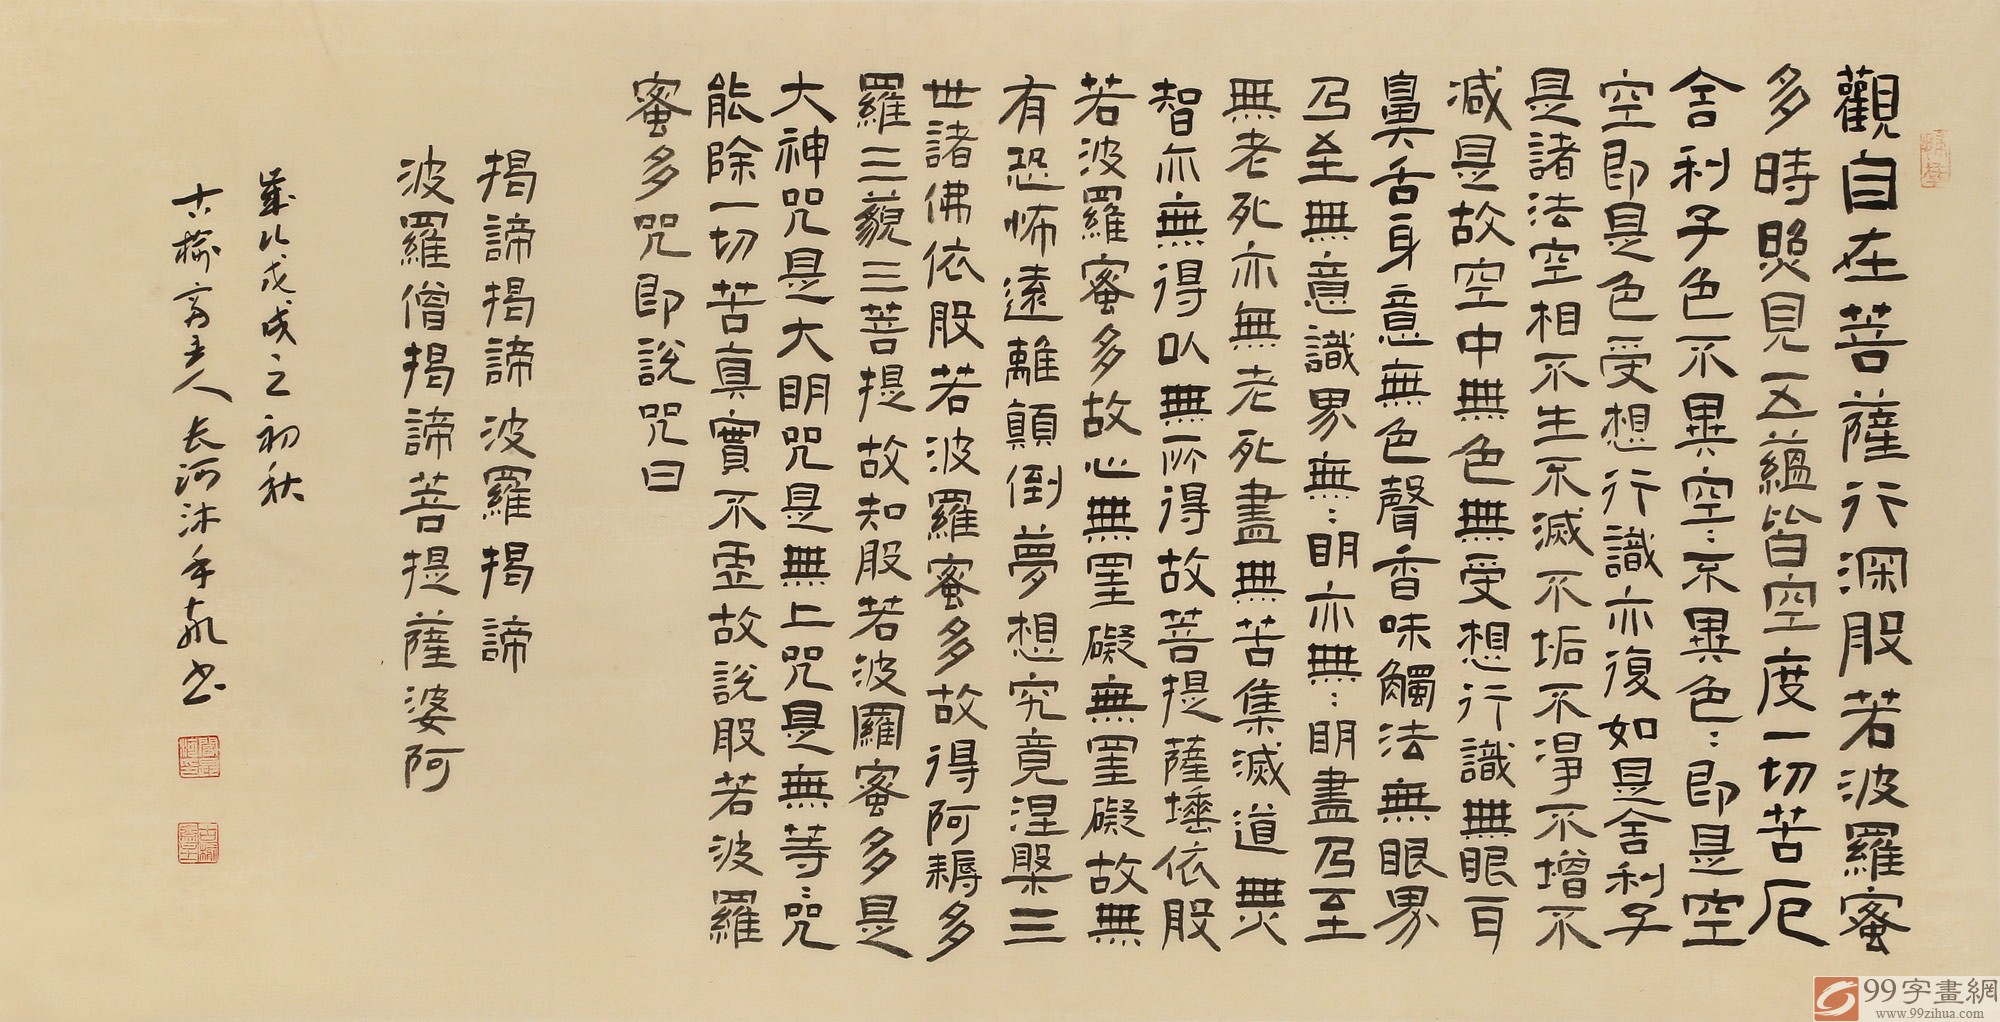 觀自在菩薩行深般若波羅蜜
多時照見五蘊皆空度一切苦厄
舍利子色不異空:不異色:即是空
空即是色受想行識亦復如是舍利子
是諸法空相不生不滅不垢不淨不增不
減是故空中無色無受想行識無眼耳
鼻舌身意無色聲香味觸法無眼界
乃至無意識界無:明亦無:明盡乃至
無老死亦無老死盡無苦集滅道無
智亦無得以無所得故菩提薩埵依般
若波羅蜜多故心無罣礙無罣礙故無
有恐怖遠離顛倒夢想究竟涅槃三
世諸佛依般若波羅蜜多故得阿耨多
羅三藐三菩提故知般若波羅蜜多是
大神咒是大明咒是無上咒是無等:咒
能除一切苦真實不虛故說般若波羅
蜜多咒即說咒曰
揭諦揭諦波羅揭諦
波羅僧揭諦菩提薩婆阿
歲次戊戌之初秋
古榆齋主人長河沐手敬書
99字畫網
www.99zihua.com